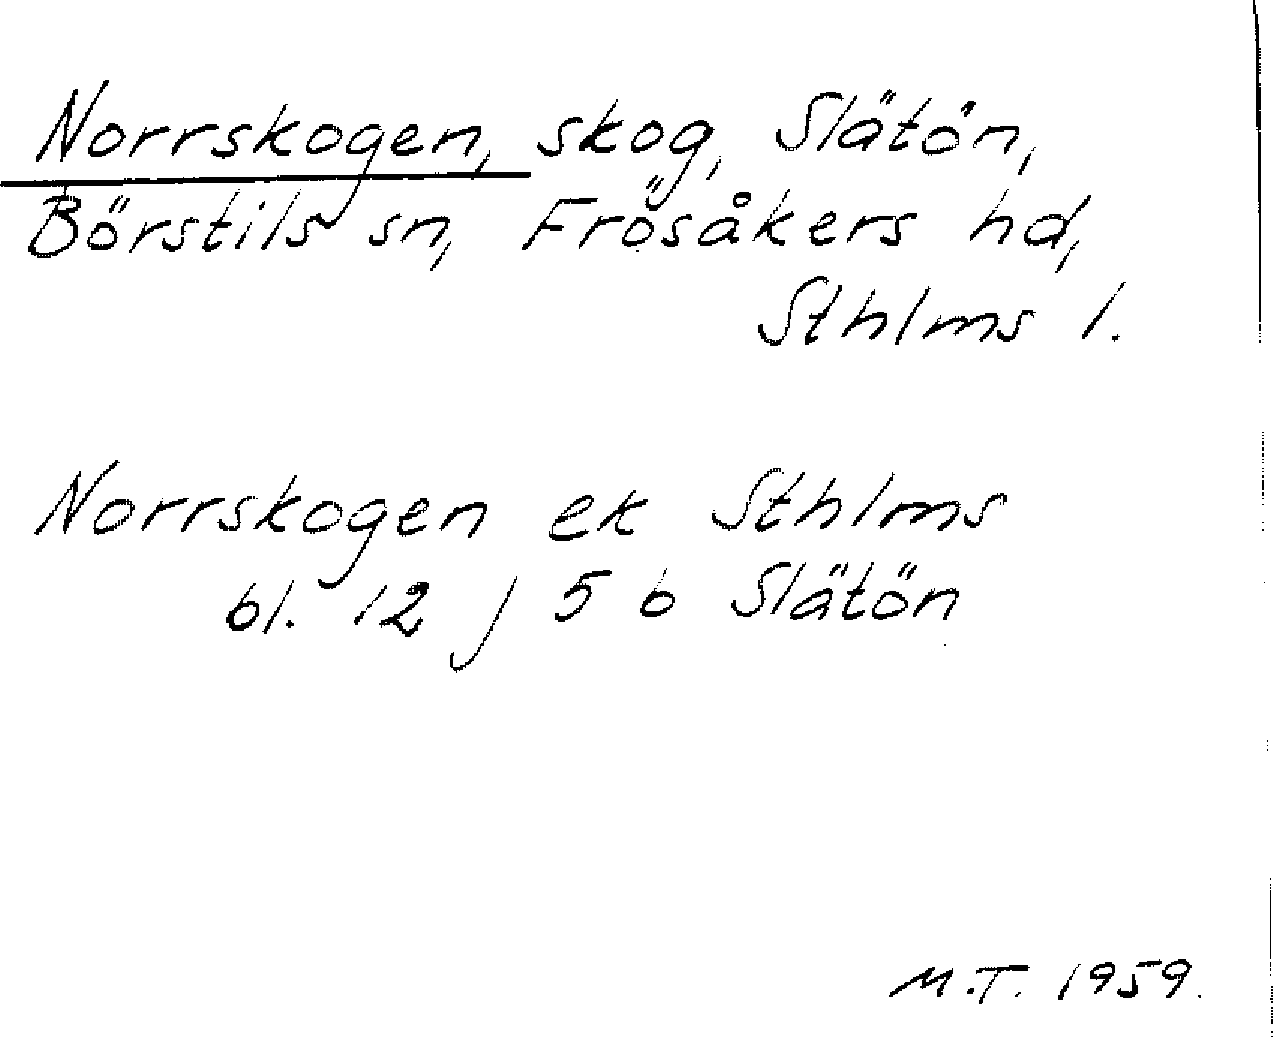 Norrskogen, skog, Slätön,
Börstils sn, Frösåkers hd,
Sthlms l.
Norrskogen ek Sthlms
bl. 12 j 5 b Slätön
M.T. 1959.